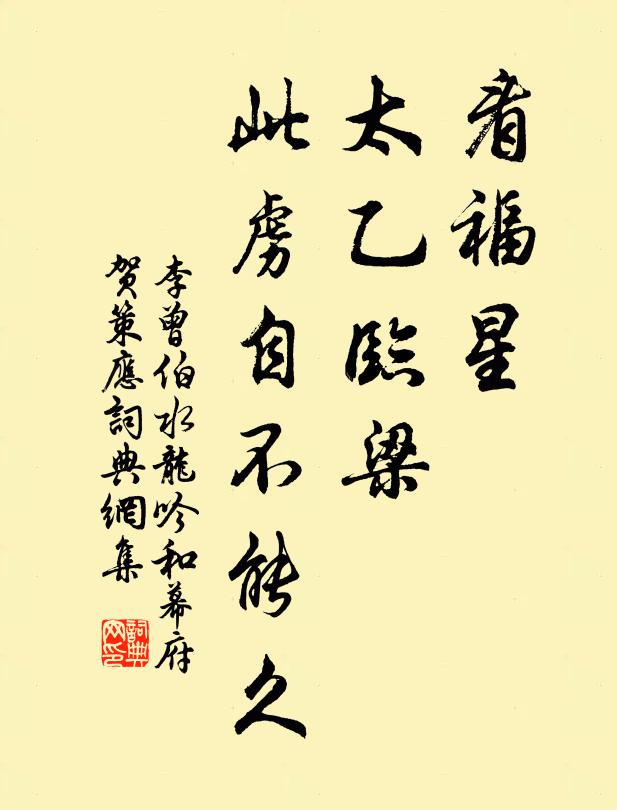 看福星
太乙臨梁
此虜自不能久
李曾伯水龍吟和幕府
賀策應詞典網集
詞典
网印